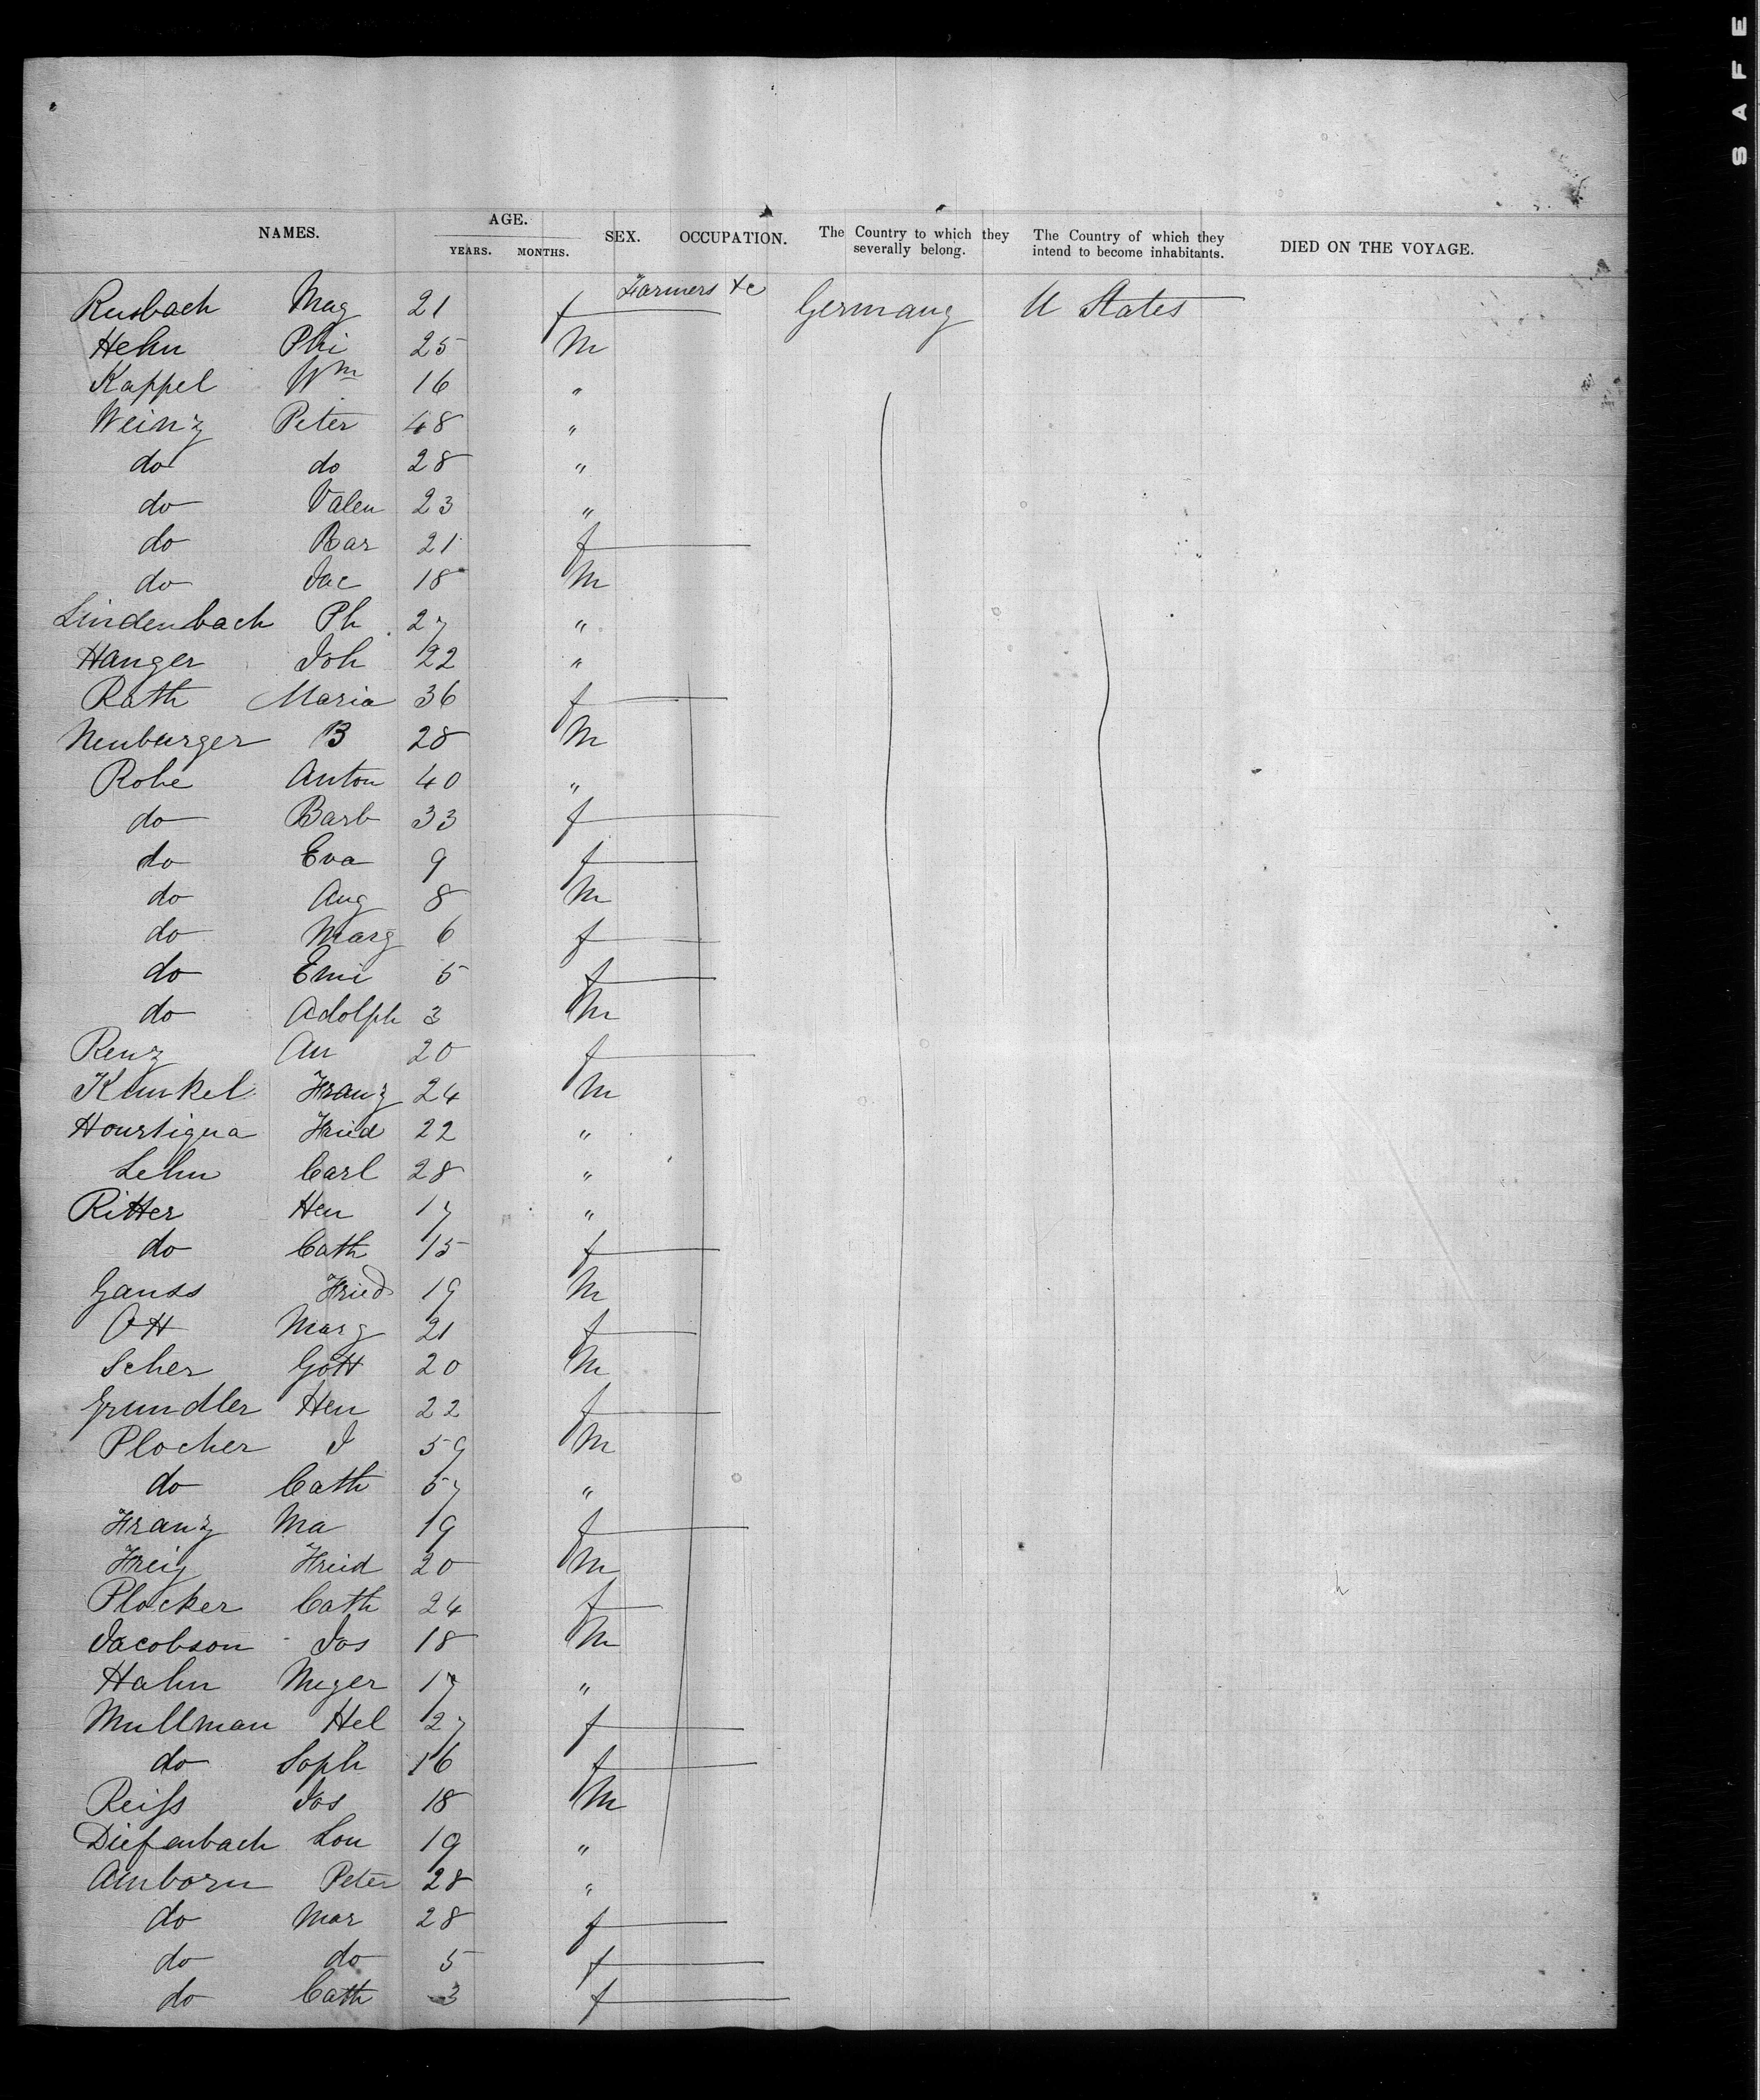 SAFE
NAMES. AGE. YEARS. MONTHS. SEX. OCCUPATION. The Country to which they severally belong. The Country of which they intend to become inhabitants. DIED ON THE VOYAGE.
Rusbach Mag 21 f Farmers &c Germany U States
Hehn Phi 25 M
Kappel Wm 16 "
Weinz Peter 48 "
do do 28 "
do Valen 23 "
do Bar 21 f
do Jac 18 M
Lindenbach Ph 27 "
Hanger Joh 22 "
Rath Maria 36 f
Neuburger B 28 M
Rohe Anton 40 "
do Barb 33 f
do Eva 9 f
do Aug 8 M
do Marg 6 f
do Emi 5 f
do Adolph 3 M
Renz An 20 f
Kunkel Franz 24 M
Houstigua Fried 22 "
Lehn Carl 28 "
Ritter Hen 17 "
do Cath 15 f
Gauss Fried 19 M
Ott Marg 21 f
Scher Gott 20 M
Grundler Hen 22 f
Plocher J 59 M
do Cath 57 "
Franz Ma 19 f
Freiy Fried 20 M
Plocker Cath 24 f
Jacobson Jos 18 M
Hahn Meyer 17 "
Mullman Hel 27 f
do Soph 16 f
Reiss Jos 18 M
Diefenbach Lou 19 "
Amborn Peter 28 "
do Mar 28 f
do do 5 f
do Cath 3 f